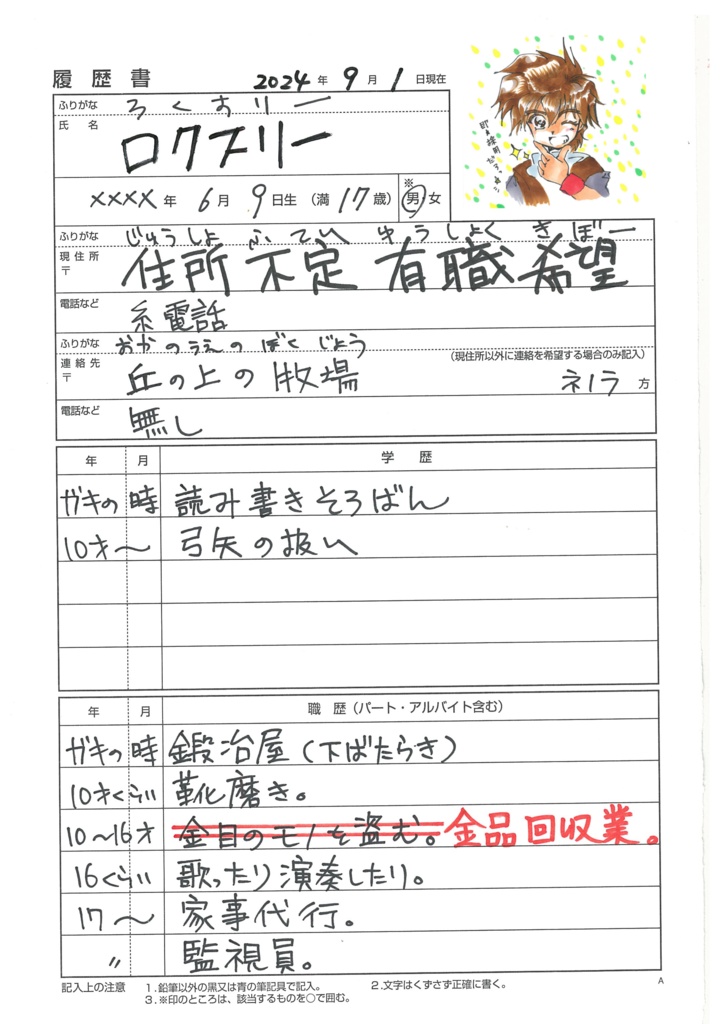 履歴書 2024年 9月 1日現在
ふりがな ろくすりー
氏名 ロクスリー
××××年 6月 9日生 (満 17歳) ※ 男・女
ふりがな じゅうしょ ふてい ゆうしょく きぼー
現住所 〒 住所不定 有職希望
電話など 糸電話
ふりがな おかのうえの ぼくじょう
連絡先 〒 (現住所以外に連絡を希望する場合のみ記入)
丘の上の牧場 ネノラ 方
電話など 無し
年 月 学歴
ガキの時 読み書きそろばん
10才〜 弓矢の扱い
年 月 職歴(パート・アルバイト含む)
ガキの時 鍛冶屋(下ばたらき)
10才くらい 靴磨き。
10〜16才 金目のモノを盗む。金品回収業。
16くらい 歌ったり演奏したり。
17〜 家事代行。
〃 監視員。
記入上の注意 1.鉛筆以外の黒又は青の筆記具で記入。 2.文字はくずさず正確に書く。
3.※印のところは、該当するものを○で囲む。
A